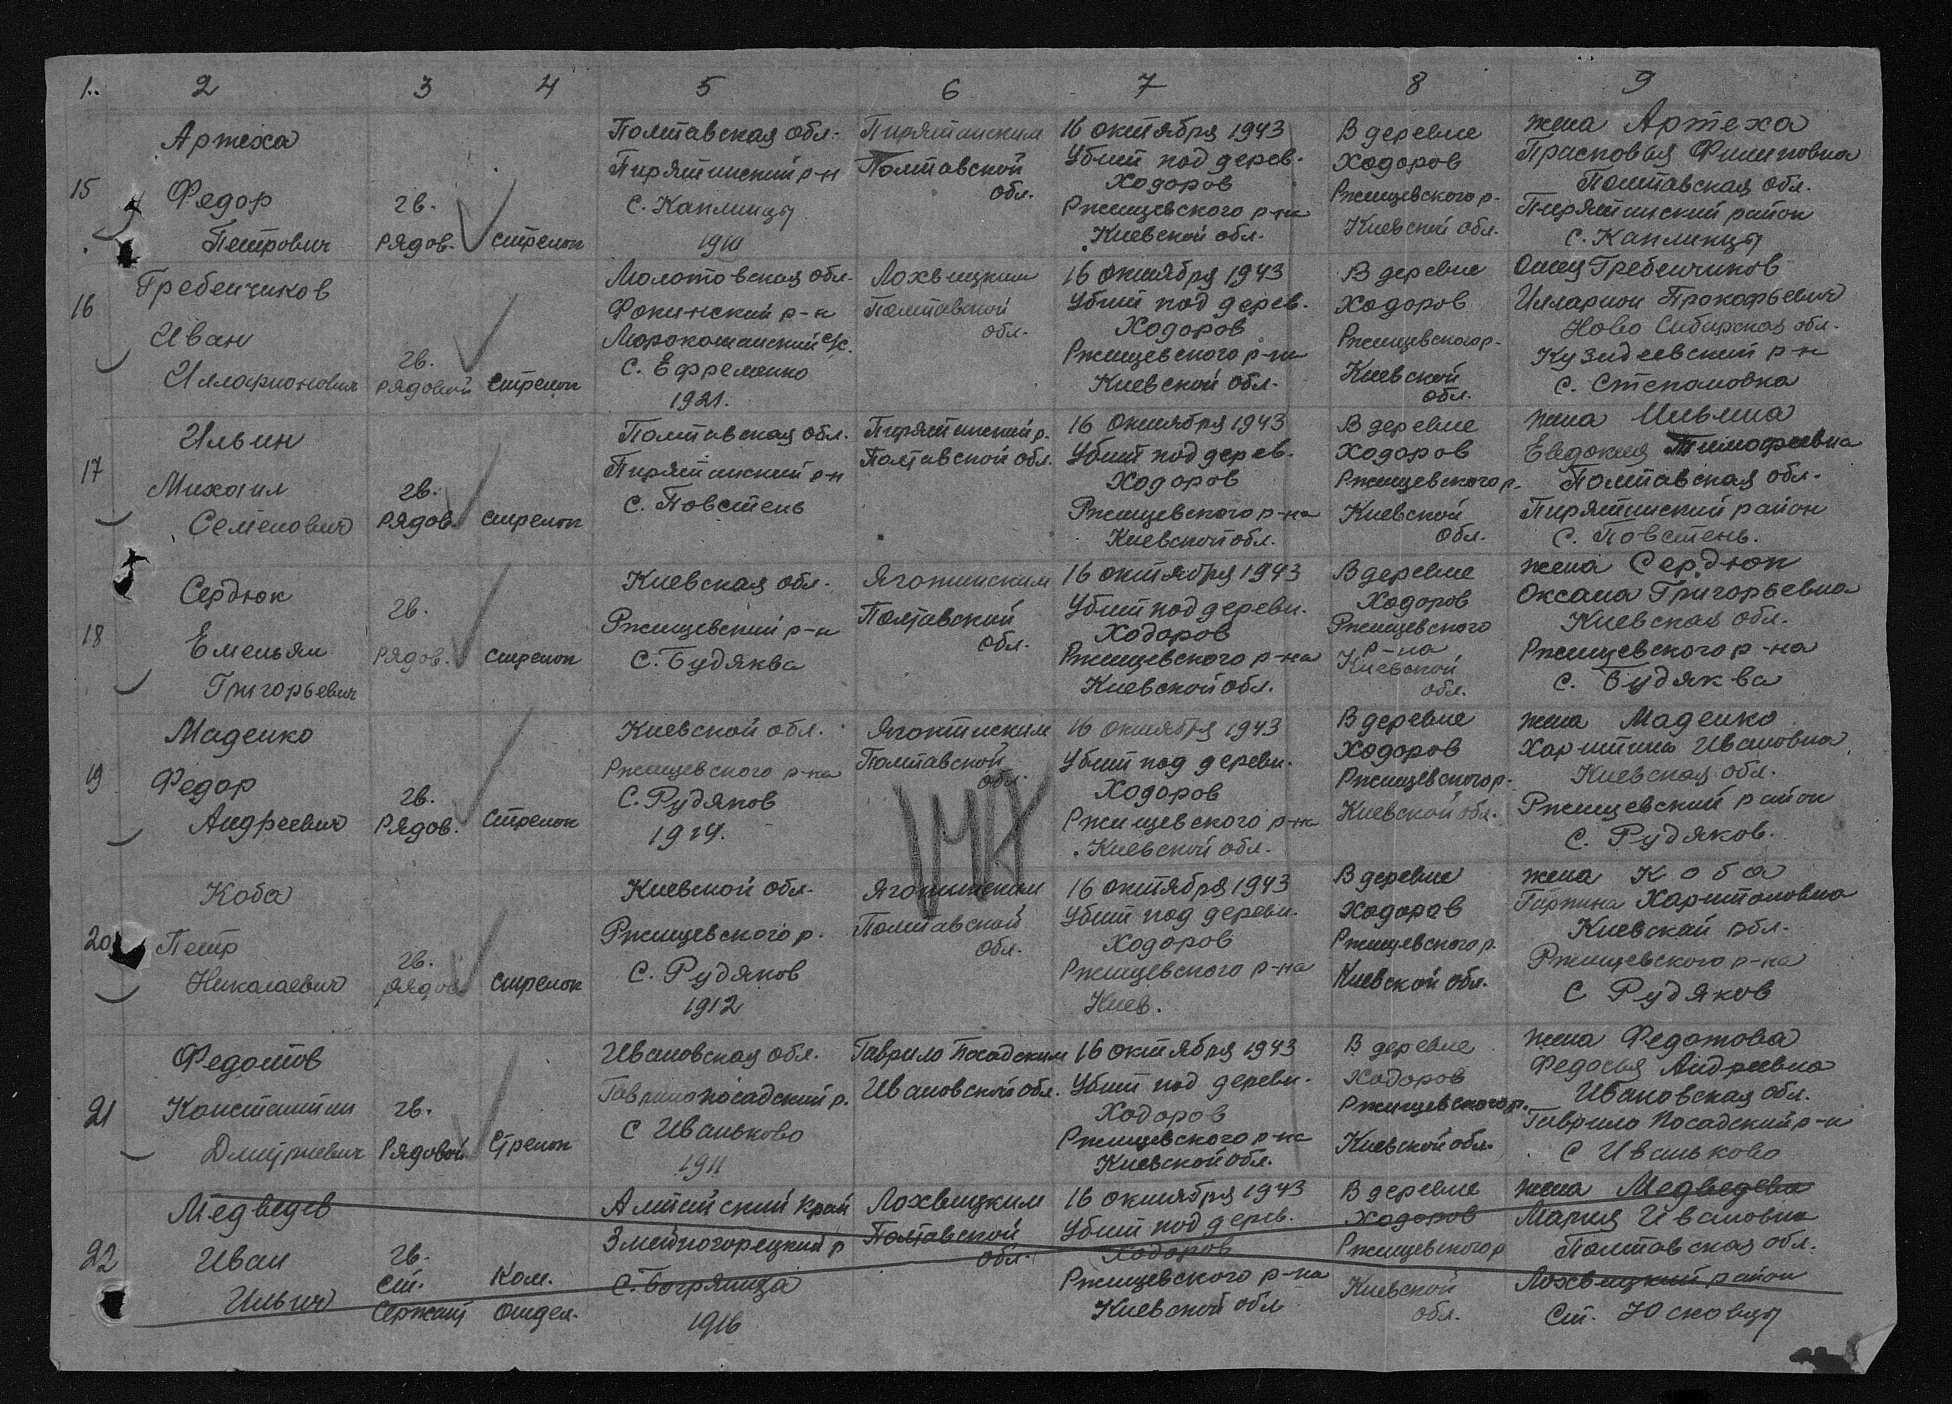 1. 2 3 4 5 6 7 8 9
15
Артеха
Федор
Петрович
гв.
рядов.
стрелок
Полтавская обл.
Пирятинский р-н
с. Каплинцы
1910
Пирятинским
Полтавской
обл.
16 октября 1943
Убит под дерев.
Ходоров
Ржищевского р-на
Киевской обл.
В деревне
Ходоров
Ржищевского р.
Киевской обл.
жена Артеха
Прасковья Филиповна
Полтавская обл.
Пирятинский район
с. Каплинцы
16
Гребенчиков
Иван
Илларионович
гв.
рядовой
стрелок
Молотовская обл.
Фокинский р-н
с/с.
с. Ефременко
1921.
Лохвицким
Полтавской
обл.
16 октября 1943
Убит под дерев.
Ходоров
Ржищевского р-на
Киевской обл.
В деревне
Ходоров
Ржищевского р.
Киевской
обл.
Отец Гребенчиков
Илларион Прокофьевич
Ново Сибирская обл.
Кузедеевский р-н
с. Степановка
17
Ильин
Михаил
Семенович
гв.
рядов.
стрелок
Полтавская обл.
Пирятинский р-н
с. Повстень
Пирятинский р.
Полтавской обл.
16 октября 1943
Убит под дерев.
Ходоров
Ржищевского р-на
Киевской обл.
В деревне
Ходоров
Ржищевского р.
Киевской
обл.
жена Ильина
Евдокия Тимофеевна
Полтавская обл.
Пирятинский район
с. Повстень.
18
Сердюк
Емельян
Григорьевич
гв.
рядов.
стрелок
Киевская обл.
Ржищевский р-н
с. Будяква
Яготинским
Полтавский
обл.
16 октября 1943
Убит под деревн.
Ходоров
Ржищевского р-на
Киевской обл.
В деревне
Ходоров
Ржищевского
р-на
Киевской
обл.
жена Сердюк
Оксана Григорьевна
Киевская обл.
Ржищевского р-на
с. Будяква
19
Маденко
Федор
Андреевич
гв.
рядов.
стрелок
Киевской обл.
Ржищевского р-на
с. Рудяков
1924.
Яготинским
Полтавской
обл.
16 октября 1943
Убит под деревн.
Ходоров
Ржищевского р-на
Киевской обл.
В деревне
Ходоров
Ржищевского р.
Киевской обл.
жена Маденко
Харитина Ивановна
Киевская обл.
Ржищевский район
с. Рудяков.
20
Коба
Петр
Николаевич
гв.
рядов
стрелок
Киевской обл.
Ржищевского р.
с. Рудяков
1912
Яготинским
Полтавской
обл.
16 октября 1943
Убит под деревн.
Ходоров
Ржищевского р-на
Киев.
В деревне
Ходоров
Ржищевского р.
Киевской обл.
жена Коба
Гарпина Харитоновна
Киевской обл.
Ржищевского р-на
с Рудяков
21
Федотов
Константин
Дмитриевич
гв.
Рядовой
Стрелок
Ивановская обл.
Гаврилопосадский р.
с Иваньково
1911
Гаврило Посадским
Ивановской обл.
16 октября 1943
Убит под деревн.
Ходоров
Ржищевского р-на
Киевской обл.
В деревне
Ходоров
Ржищевского р.
Киевской обл.
жена Федотова
Федосья Андреевна
Ивановская обл.
Гаврило Посадский р-н
с Иваньково
22
Медведев
Иван
Ильич
гв.
ст.
Сержант
Ком.
отдел.
Алтайский край
Змеиногорецкий р
с.
1916
Лохвицким
Полтавской
обл.
16 октября 1943
Убит под дерев.
Ходоров
Ржищевского р-на
Киевской обл
В деревне
Ходоров
Ржищевского р
Киевской
обл.
жена Медведева
Мария Ивановна
Полтавская обл.
Лохвицкий район
ст. Юсковцы